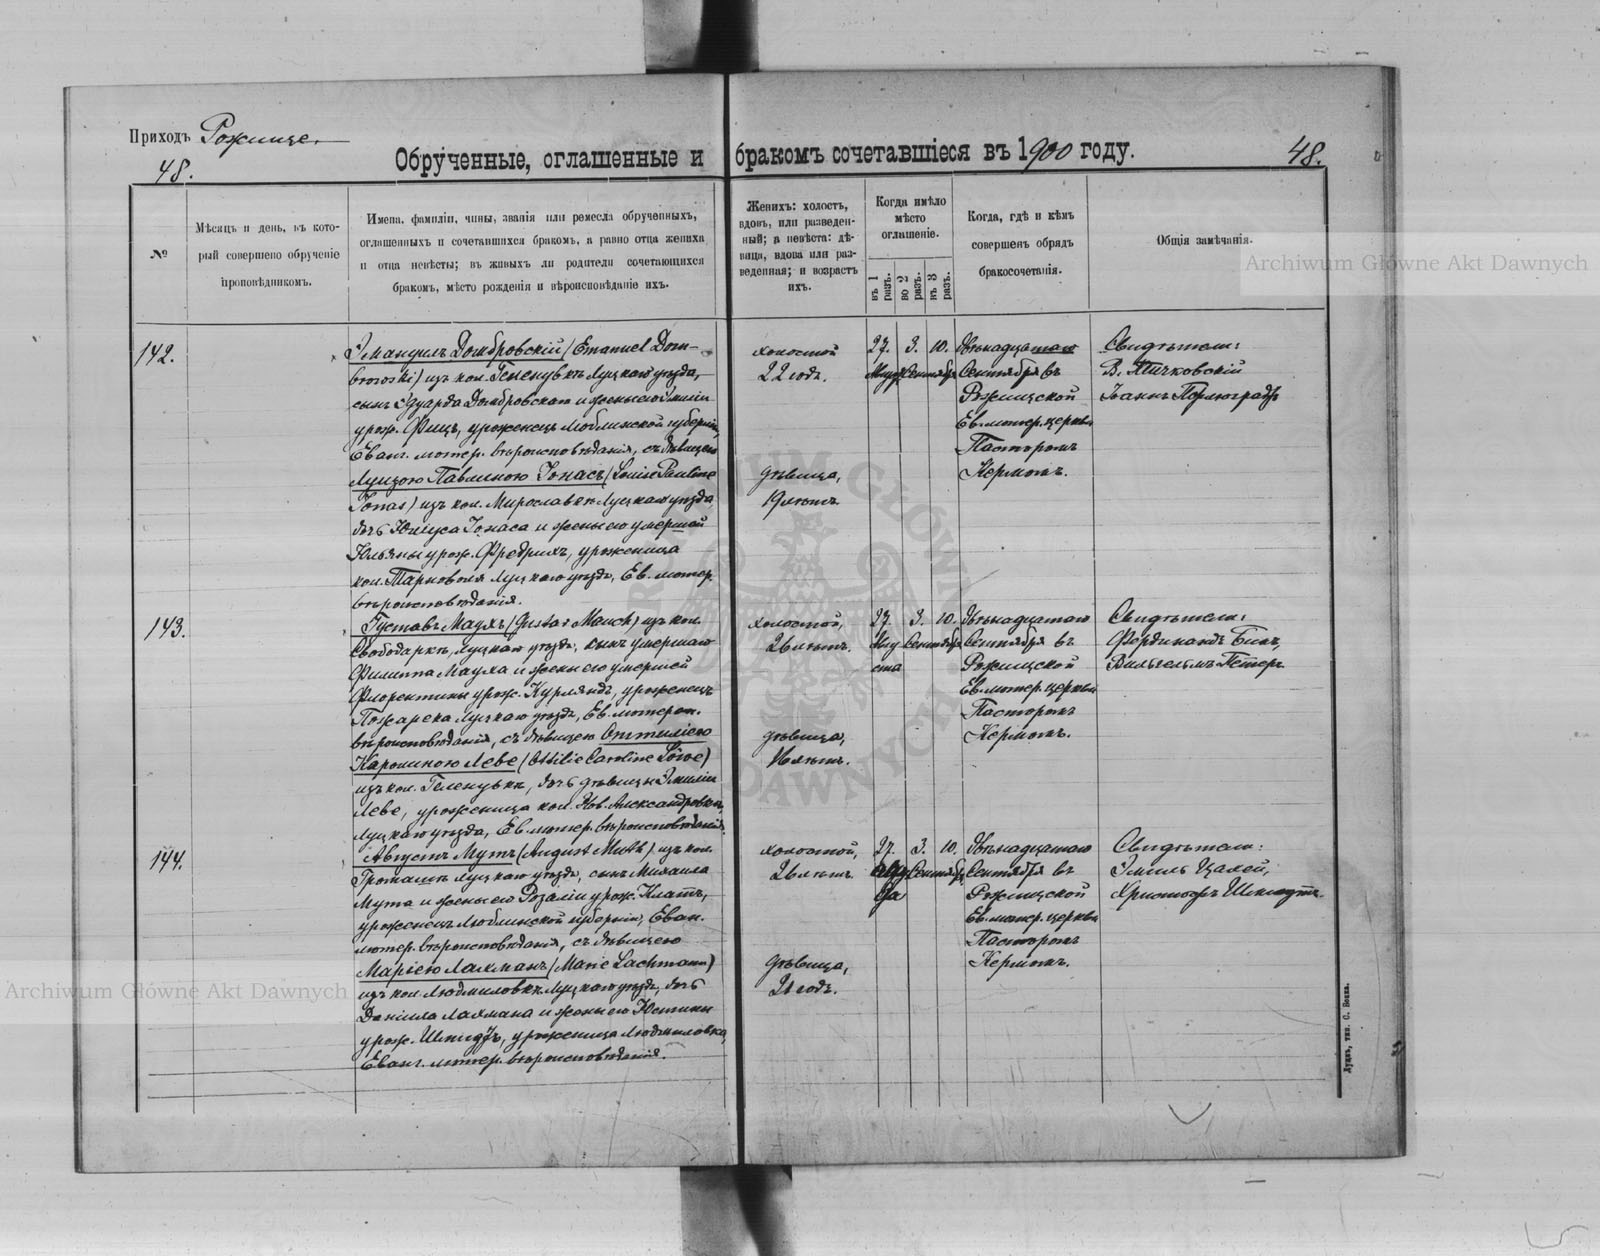 Приходъ Рожище.
48.
Обрученные, оглашенные и бракомъ сочетавшіеся въ 1900 году.
48.
№
Мѣсяцъ и день, въ кото-
рый совершено обрученіе
проповѣдникомъ.
Имена, фамиліи, чины, званія или ремесла обрученныхъ,
оглашенныхъ и сочетавшихся бракомъ, а равно отца жениха
и отца невѣсты; въ живыхъ ли родители сочетающихся
бракомъ, мѣсто рожденія и вѣроисповѣданіе ихъ.
Женихъ: холостъ,
вдовъ, или разведен-
ный; а невѣста: дѣ-
вица, вдова или раз-
веденная; и возрастъ
ихъ.
Когда имѣло
мѣсто
оглашеніе.
въ 1 разъ.
во 2 разъ.
въ 3 разъ.
Когда, гдѣ и кѣмъ
совершенъ обрядъ
бракосочетанія.
Общія замѣчанія.
142.
Эмануилъ Домбровскій (Emanuel Dom-
browski) изъ кол. Геленувкѣ Луцкаго уѣзда,
сынъ Эдуарда Домбровскаго и жены его Эмиліи
урож. Фицъ, уроженецъ Люблинской губерніи,
Еванг. лютер. вѣроисповѣданія, съ дѣвицею
Луизою Павлиною Іонасъ (Louise Pauline
Jonas) изъ кол. Мирославкѣ Луцкаго уѣзда
дочь Юлиуса Іонаса и жены его умершой
Юльяны урож. Фредрихъ, уроженица
кол. Тарноволя Луцкаго уѣзда, Ев. лютер.
вѣроисповѣданія.
холостой
22 годъ.
дѣвица,
19 лѣтъ.
27. 3. 10.
Авгу Сентября
Двѣнадцатаго
Сентября въ
Рожищской
Ев. лютер. церкви
Пасторомъ
Кермомъ.
Свидѣтели:
В. Птичковскій
Іоаннъ
143.
Густавъ Маухъ (Gustav Mauch) изъ кол.
Свободаркѣ, Луцкаго уѣзда, сынъ умершаго
Филиппа Мауха и жены его умершей
Флорентины урож. Курляндъ, уроженецъ
Пожарека Луцкаго уѣзда, Ев. лютеран.
вѣроисповѣданія, съ дѣвицею Оттиліею
Каролиною Леве (Ottilie Caroline Löwe)
изъ кол. Геленувкѣ, дочь дѣвицы Эмиліи
Леве, уроженица кол. Нов. Александровка,
Луцкаго уѣзда, Ев. лютер. вѣроисповѣданія.
холостой,
26 лѣтъ.
дѣвица,
лѣтъ.
27. 3. 10.
Авгу Сентября
ста
Двѣнадцатаго
Сентября въ
Рожищской
Ев. лютер. церкви
Пасторомъ
Кермомъ.
Свидѣтели:
Фердинандъ Бикъ,
Вильгельмъ Петеръ
144.
Августъ Мутъ (August Muth) изъ кол.
Громашъ Луцкаго уѣзда, сынъ Михаила
Мута и жены его Розаліи урож. Клаттъ,
уроженецъ Люблинской губерніи, Еван.
лютер. вѣроисповѣданія, съ дѣвицею
Маріею Лахманъ (Marie Lachmann)
изъ кол. Людмиловкѣ Луцкаго уѣзда, дочь
Даніила Лахмана и жены его Юстины
урож. Шмидтъ, уроженица Людмиловка,
Еванг. лютер. вѣроисповѣданія.
холостой,
26 лѣтъ
дѣвица,
21 годъ.
27. 3. 10.
Сентября
Двѣнадцатаго
Сентября въ
Рожищской
Ев. лютер. церкви
Пасторомъ
Кермомъ.
Свидѣтели:
Эмиль Цалей,
Христофъ Шмидтъ.
Луцкъ, тип. С. Бокка.
Archiwum Główne Akt Dawnych
Archiwum Główne Akt Dawnych